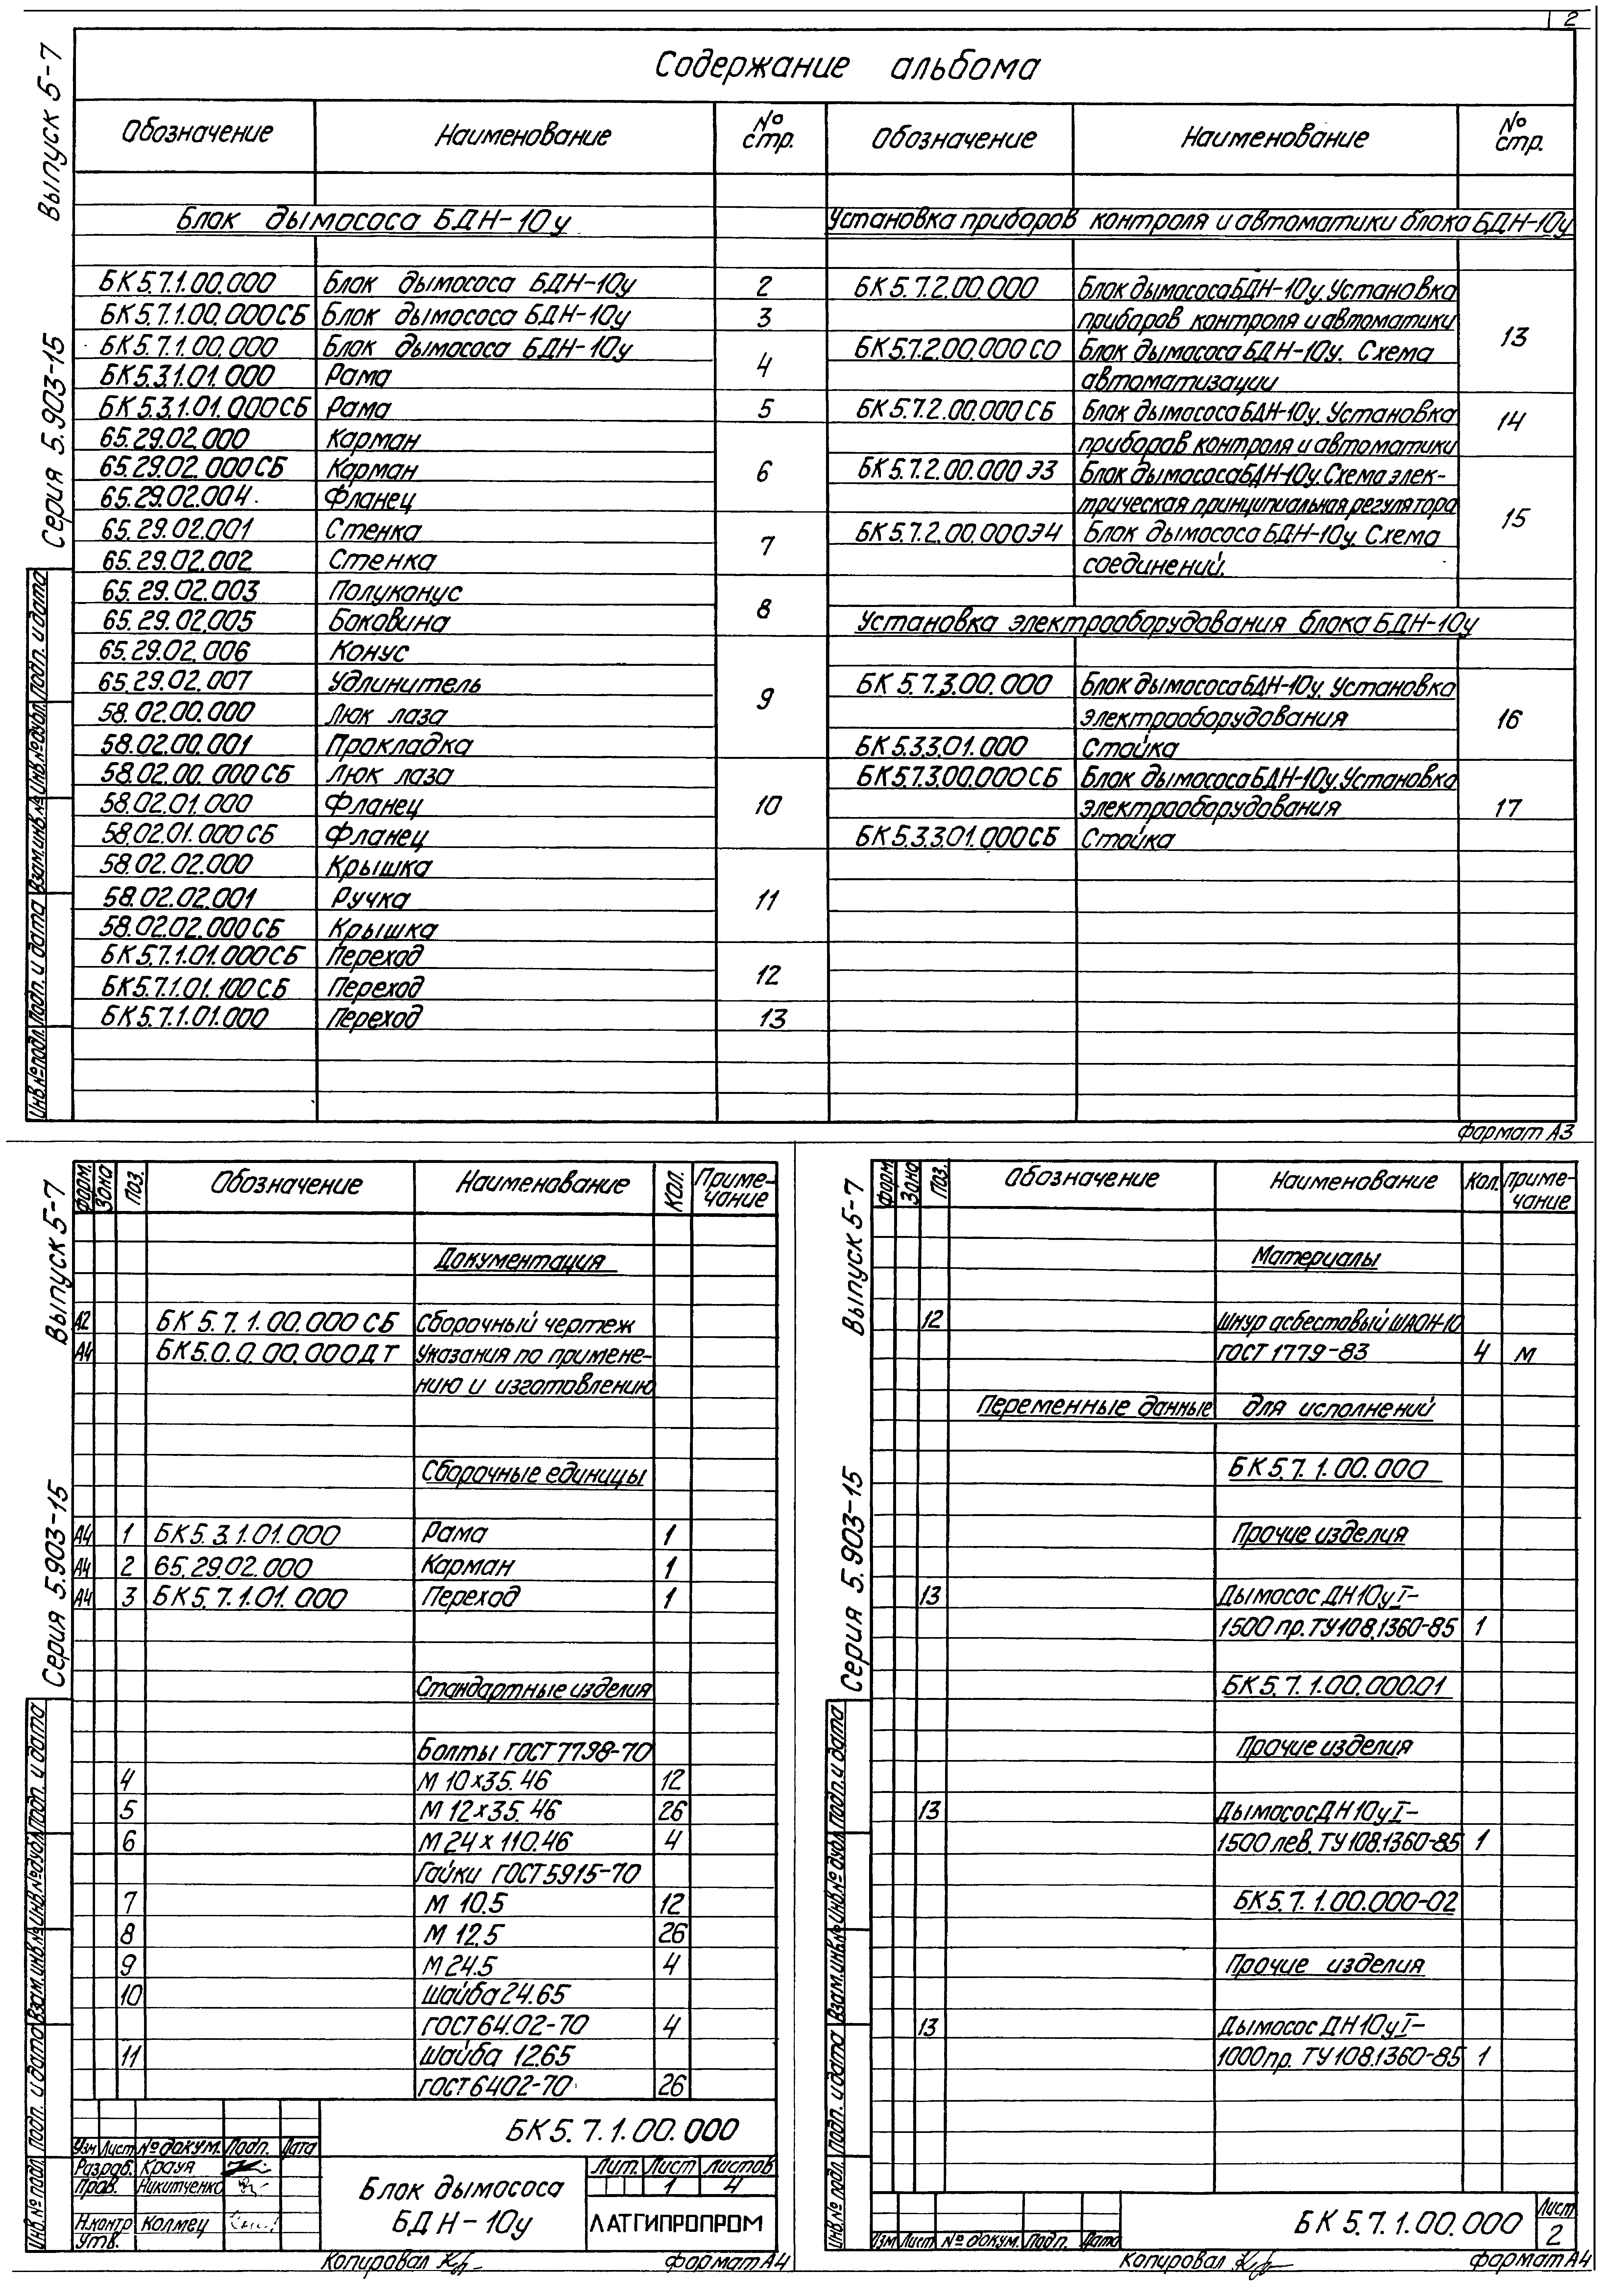 2
Выпуск 5-7
Серия 5.903-15
Содержание альбома
Обозначение Наименование № стр. Обозначение Наименование № стр.
Блок дымососа БДН-10у
БК5.7.1.00.000 Блок дымососа БДН-10у 2
БК5.7.1.00.000СБ Блок дымососа БДН-10у 3
БК5.7.1.00.000 Блок дымососа БДН-10у
4
БК5.3.1.01.000 Рама
БК5.3.1.01.000СБ Рама 5
65.29.02.000 Карман
65.29.02.000СБ Карман 6
65.29.02.004 Фланец
65.29.02.001 Стенка
7
65.29.02.002 Стенка
65.29.02.003 Полуконус
8
65.29.02.005 Боковина
65.29.02.006 Конус
65.29.02.007 Удлинитель
9
58.02.00.000 Люк лаза
58.02.00.001 Прокладка
58.02.00.000СБ Люк лаза
58.02.01.000 Фланец 10
58.02.01.000СБ Фланец
58.02.02.000 Крышка
58.02.02.001 Ручка 11
58.02.02.000СБ Крышка
БК5.7.1.01.000СБ Переход
12
БК5.7.1.01.100СБ Переход
БК5.7.1.01.000 Переход 13
Установка приборов контроля и автоматики блока БДН-10у
БК5.7.2.00.000 Блок дымососа БДН-10у. Установка
приборов контроля и автоматики
13
БК5.7.2.00.000СО Блок дымососа БДН-10у. Схема
автоматизации
БК5.7.2.00.000СБ Блок дымососа БДН-10у. Установка
14
приборов контроля и автоматики
БК5.7.2.00.000Э3 Блок дымососа БДН-10у. Схема элек-
трическая принципиальная регулятора
15
БК5.7.2.00.000Э4 Блок дымососа БДН-10у. Схема
соединений.
Установка электрооборудования блока БДН-10у
БК5.7.3.00.000 Блок дымососа БДН-10у. Установка
электрооборудования 16
БК5.3.3.01.000 Стойка
БК5.7.3.00.000СБ Блок дымососа БДН-10у. Установка
электрооборудования 17
БК5.3.3.01.000СБ Стойка
Инв.№подл. Подп. и дата Взам.инв.№ Инв.№дубл. Подп. и дата
формат А3
Выпуск 5-7
Серия 5.903-15
Форм. Зона Поз. Обозначение Наименование Кол. Приме-
чание
Документация
А2 БК5.7.1.00.000СБ Сборочный чертеж
А4 БК5.0.0.00.000ДТ Указания по примене-
нию и изготовлению
Сборочные единицы
А4 1 БК5.3.1.01.000 Рама 1
А4 2 65.29.02.000 Карман 1
А4 3 БК5.7.1.01.000 Переход 1
Стандартные изделия
Болты ГОСТ7798-70
4 М10х35.46 12
5 М12х35.46 26
6 М24х110.46 4
Гайки ГОСТ5915-70
7 М 10.5 12
8 М 12.5 26
9 М24.5 4
10 Шайба 24.65
ГОСТ6402-70 4
11 Шайба 12.65
ГОСТ6402-70 26
Инв.№подл. Подп. и дата Взам.инв.№ Инв.№дубл. Подп. и дата
БК5.7.1.00.000
Изм Лист № докум. Подп. Дата
Разраб. Крауя
Пров. Никитченко
Н.контр Колмец
Утв.
Блок дымососа
БДН-10у
Лит. Лист Листов
1 4
ЛАТГИПРОПРОМ
Копировал
формат А4
Выпуск 5-7
Серия 5.903-15
Форм Зона Поз. Обозначение Наименование Кол. Приме-
чание
Материалы
12 Шнур асбестовый ШАОН-10
ГОСТ 1779-83 4 м
Переменные данные для исполнений
БК5.7.1.00.000
Прочие изделия
13 Дымосос ДН10уI-
1500 пр. ТУ108.1360-85 1
БК5.7.1.00.000.01
Прочие изделия
13 Дымосос ДН10уI-
1500 лев. ТУ108.1360-85 1
БК5.7.1.00.000-02
Прочие изделия
13 Дымосос ДН10уI-
1000пр. ТУ108.1360-85 1
Инв.№подл. Подп. и дата Взам.инв.№ Инв.№дубл. Подп. и дата
Изм Лист № докум. Подп. Дата
БК5.7.1.00.000
Лист
2
Копировал
формат А4